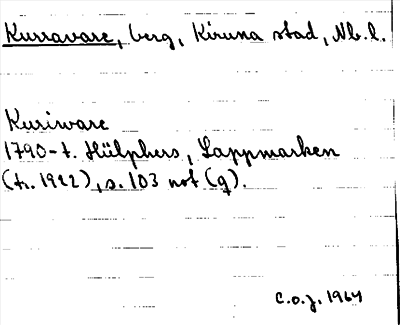 Kurravare, berg, Kiruna stad, Nb.l.
Kuriware
1790-t. Hülphers, Lappmarken
(tr. 1922), s. 103 not (g).
C.O.J. 1964